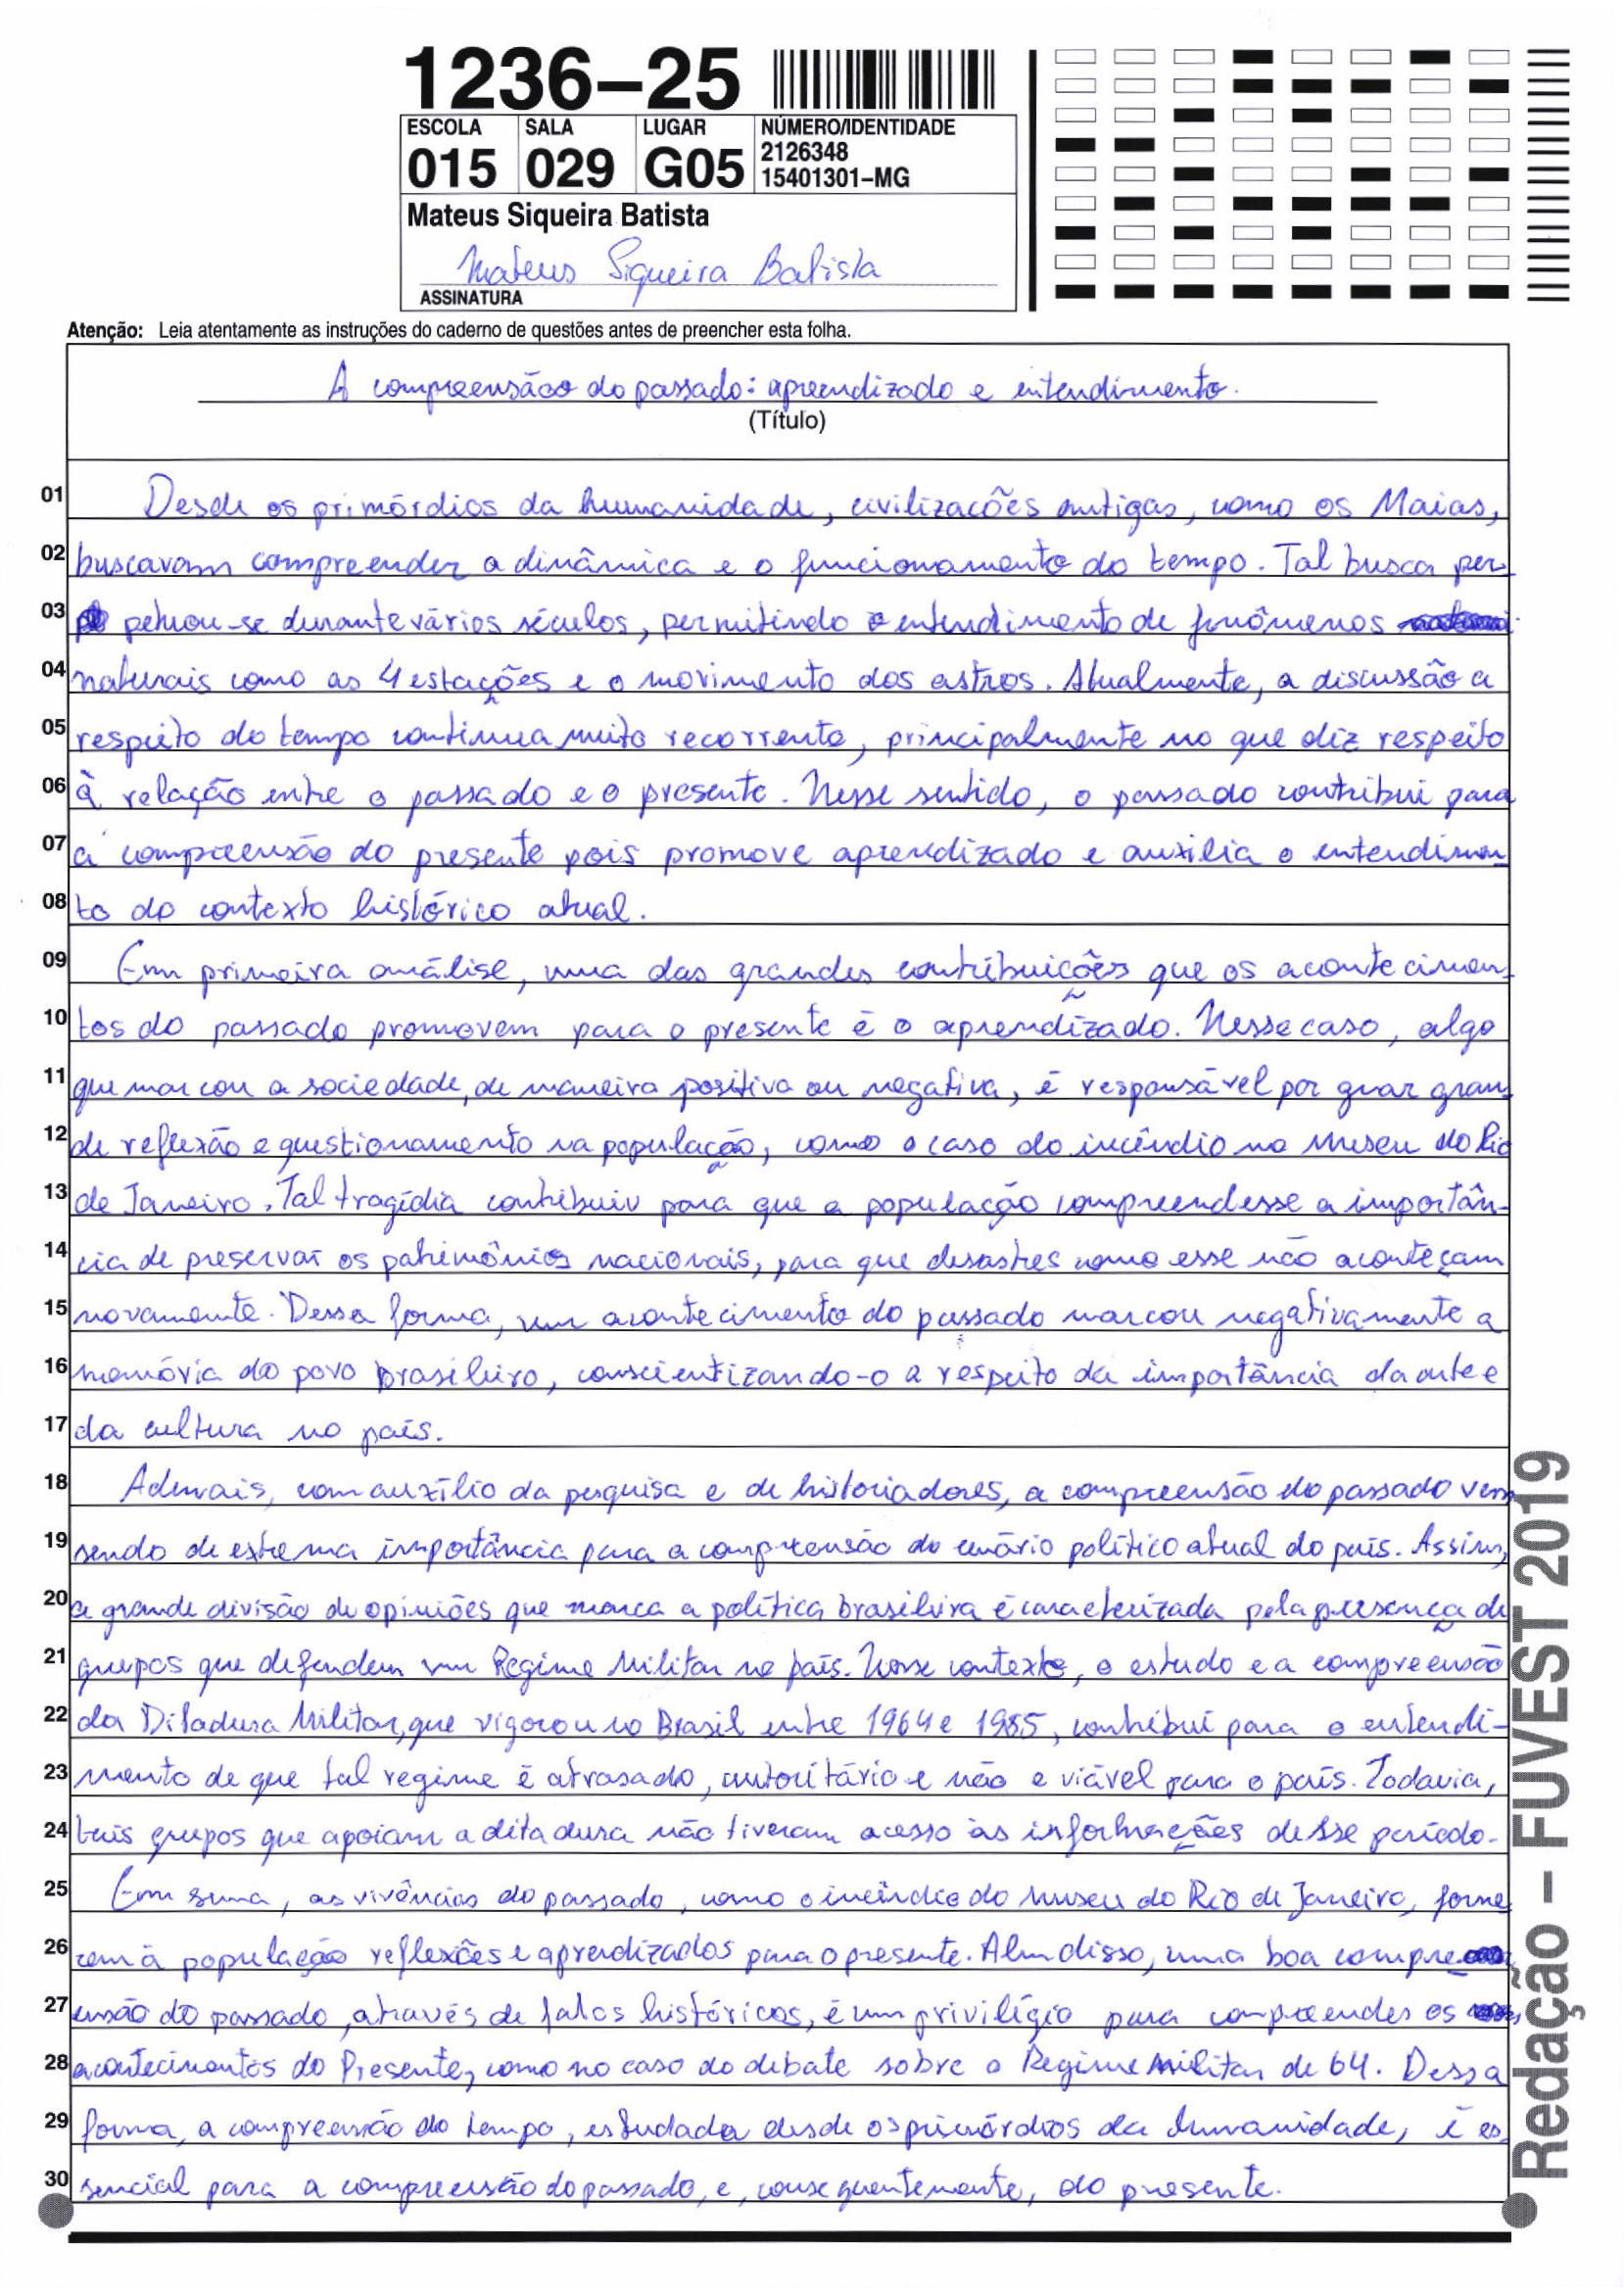 1236-25
ESCOLA SALA LUGAR NÚMERO/IDENTIDADE
015 029 G05 2126348
15401301-MG
Mateus Siqueira Batista
Mateus Siqueira Batista
ASSINATURA
Atenção: Leia atentamente as instruções do caderno de questões antes de preencher esta folha.
A compreensão do passado: aprendizado e entendimento.
(Título)
01 Desde os primórdios da humanidade, civilizações antigas, como os Maias,
02 buscavam compreender a dinâmica e o funcionamento do tempo. Tal busca per
03 petuou-se durante vários séculos, permitindo o entendimento de fenômenos
04 naturais como as 4 estações e o movimento dos astros. Atualmente, a discussão a
05 respeito do tempo continua muito recorrente, principalmente no que diz respeito
06 à relação entre o passado e o presente. Nesse sentido, o passado contribui para
07 a compreensão do presente pois promove aprendizado e auxilia o entendimen
08 to do contexto histórico atual.
09 Em primeira análise, uma das grandes contribuições que os acontecimen
10 tos do passado promovem para o presente é o aprendizado. Nesse caso, algo
11 que marcou a sociedade, de maneira positiva ou negativa, é responsável por gerar gran
12 de reflexão e questionamento na população, como o caso do incêndio no Museu do Rio
13 de Janeiro. Tal tragédia contribuiu para que a população compreendesse a importân-
14 cia de preservar os patrimônios nacionais, para que desastres como esse não aconteçam
15 novamente. Dessa forma, um acontecimento do passado marcou negativamente a
16 memória do povo brasileiro, conscientizando-o a respeito da importância da arte e
17 da cultura no país.
18 Ademais, com auxílio da pesquisa e de historiadores, a compreensão do passado vem
19 sendo de extrema importância para a compreensão do cenário político atual do país. Assim,
20 a grande divisão de opiniões que marca a política brasileira é caracterizada pela presença de
21 grupos que defendem um Regime Militar no país. Nesse contexto, o estudo e a compreensão
22 da Ditadura Militar, que vigorou no Brasil entre 1964 e 1985, contribui para o entendi-
23 mento de que tal regime é atrasado, autoritário e não é viável para o país. Todavia,
24 tais grupos que apoiam a ditadura não tiveram acesso às informações desse período.
25 Em suma, as vivências do passado, como o incêndio do Museu do Rio de Janeiro, forne
26 cem à população reflexões e aprendizados para o presente. Além disso, uma boa compre
27 ensão do passado, através de fatos históricos, é um privilégio para compreender os
28 acontecimentos do Presente, como no caso do debate sobre o Regime Militar de 64. Dessa
29 forma, a compreensão do tempo, estudada desde os primórdios da humanidade, é es
30 sencial para a compreensão do passado, e, consequentemente, do presente.
Redação – FUVEST 2019